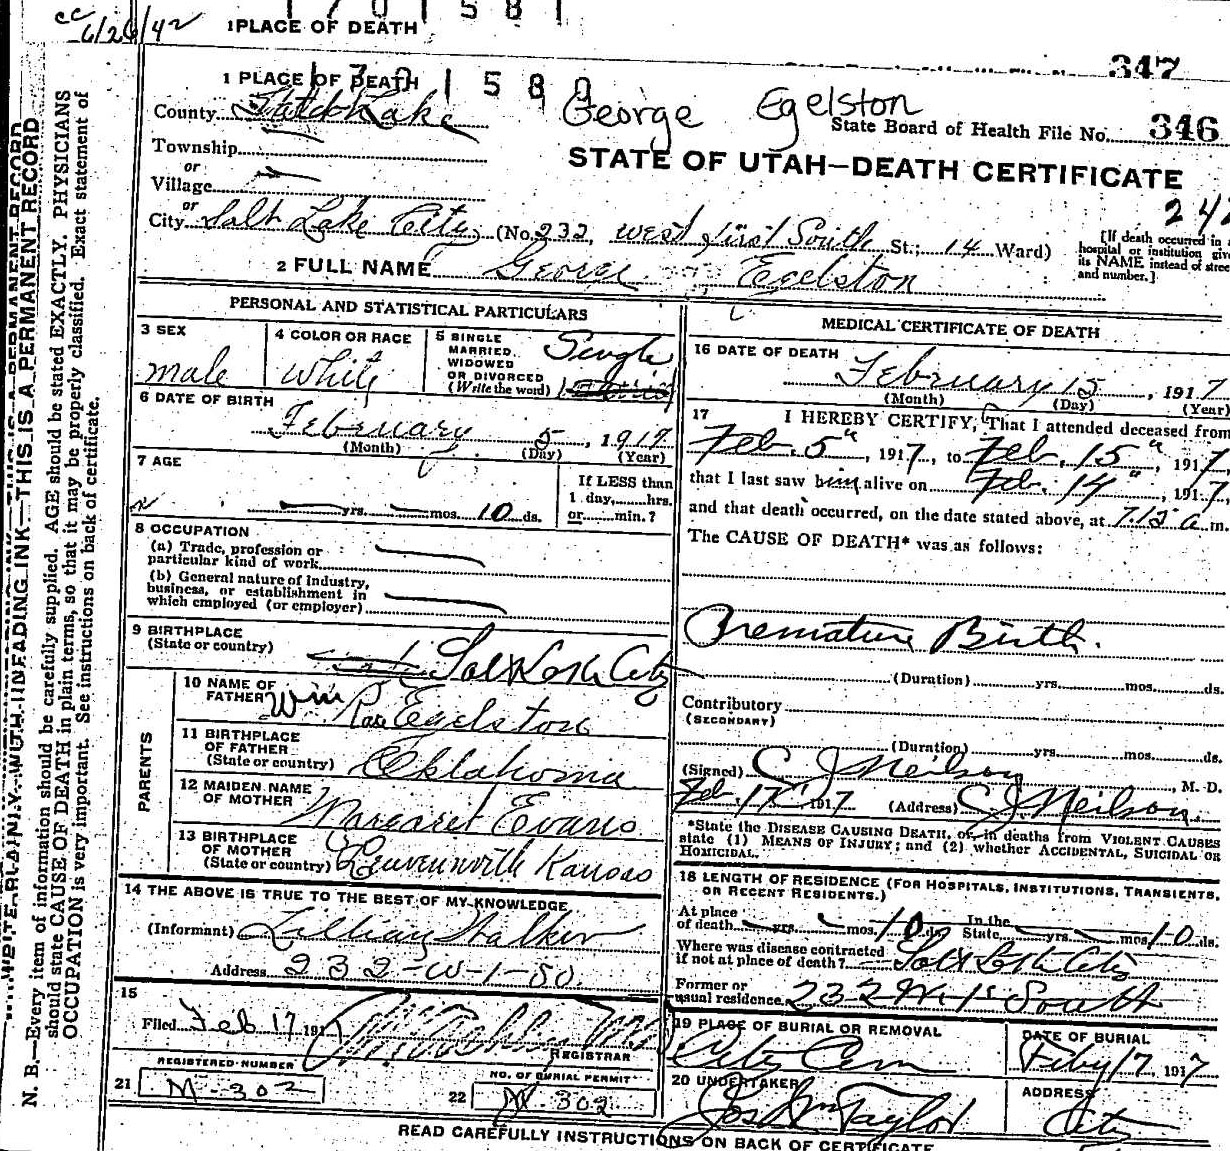 cc
6/26/42 1 PLACE OF DEATH 1701581
347
1 PLACE OF DEATH 1701580
George Egelston
County Salt Lake
State Board of Health File No. 346
Township
or
Village
STATE OF UTAH—DEATH CERTIFICATE
242
or
City Salt Lake City (No. 232, west first South St.; 14 Ward)
[If death occurred in
hospital or institution give
its NAME instead of street
and number.]
2 FULL NAME George Egelston
PERSONAL AND STATISTICAL PARTICULARS
3 SEX
male
4 COLOR OR RACE
White
5 SINGLE
MARRIED,
WIDOWED
OR DIVORCED
(Write the word)
Single
6 DATE OF BIRTH
February 5, 1917
(Month) (Day) (Year)
7 AGE
yrs. mos. 10 ds.
If LESS than
1 day, hrs.
or min.?
8 OCCUPATION
(a) Trade, profession or
particular kind of work
(b) General nature of industry,
business, or establishment in
which employed (or employer)
9 BIRTHPLACE
(State or country) Salt Lake City
PARENTS
10 NAME OF
FATHER Wm Egelston
11 BIRTHPLACE
OF FATHER
(State or country) Oklahoma
12 MAIDEN NAME
OF MOTHER Margaret Evans
13 BIRTHPLACE
OF MOTHER
(State or country) Leuvenworth Kansas
14 THE ABOVE IS TRUE TO THE BEST OF MY KNOWLEDGE
(Informant) Lillian Walker
Address 232-W-1-SO.
15
Filed Feb 17 1917
REGISTRAR
REGISTERED NUMBER
21 M-302
NO. OF BURIAL PERMIT
22 M-302
MEDICAL CERTIFICATE OF DEATH
16 DATE OF DEATH
February 15, 1917
(Month) (Day) (Year)
17 I HEREBY CERTIFY, That I attended deceased from
Feb. 5", 1917, to Feb. 15", 1917,
that I last saw him alive on Feb. 14", 1917,
and that death occurred, on the date stated above, at 7.15 a m.
The CAUSE OF DEATH* was as follows:
Premature Birth.
(Duration) yrs. mos. ds.
Contributory
(SECONDARY)
(Duration) yrs. mos. ds.
(Signed) C J Neilson, M. D.
Feb, 17" 1917 (Address) C. J. Neilson.
*State the DISEASE CAUSING DEATH, or, in deaths from VIOLENT CAUSES
state (1) MEANS OF INJURY; and (2) whether ACCIDENTAL, SUICIDAL or
HOMICIDAL.
18 LENGTH OF RESIDENCE (FOR HOSPITALS, INSTITUTIONS, TRANSIENTS,
OR RECENT RESIDENTS.)
At place
of death yrs. mos. 10 ds. In the
State yrs. mos. 10 ds.
Where was disease contracted
if not at place of death? Salt Lake City
Former or
usual residence 232 W. 1st South
19 PLACE OF BURIAL OR REMOVAL
City Cem
DATE OF BURIAL
Feby 17, 1917
20 UNDERTAKER
Jos Wm Taylor
ADDRESS
City
READ CAREFULLY INSTRUCTIONS ON BACK OF CERTIFICATE
WRITE PLAINLY WITH UNFADING INK—THIS IS A PERMANENT RECORD
N. B.—Every item of information should be carefully supplied. AGE should be stated EXACTLY. PHYSICIANS
should state CAUSE OF DEATH in plain terms, so that it may be properly classified. Exact statement of
OCCUPATION is very important. See instructions on back of certificate.